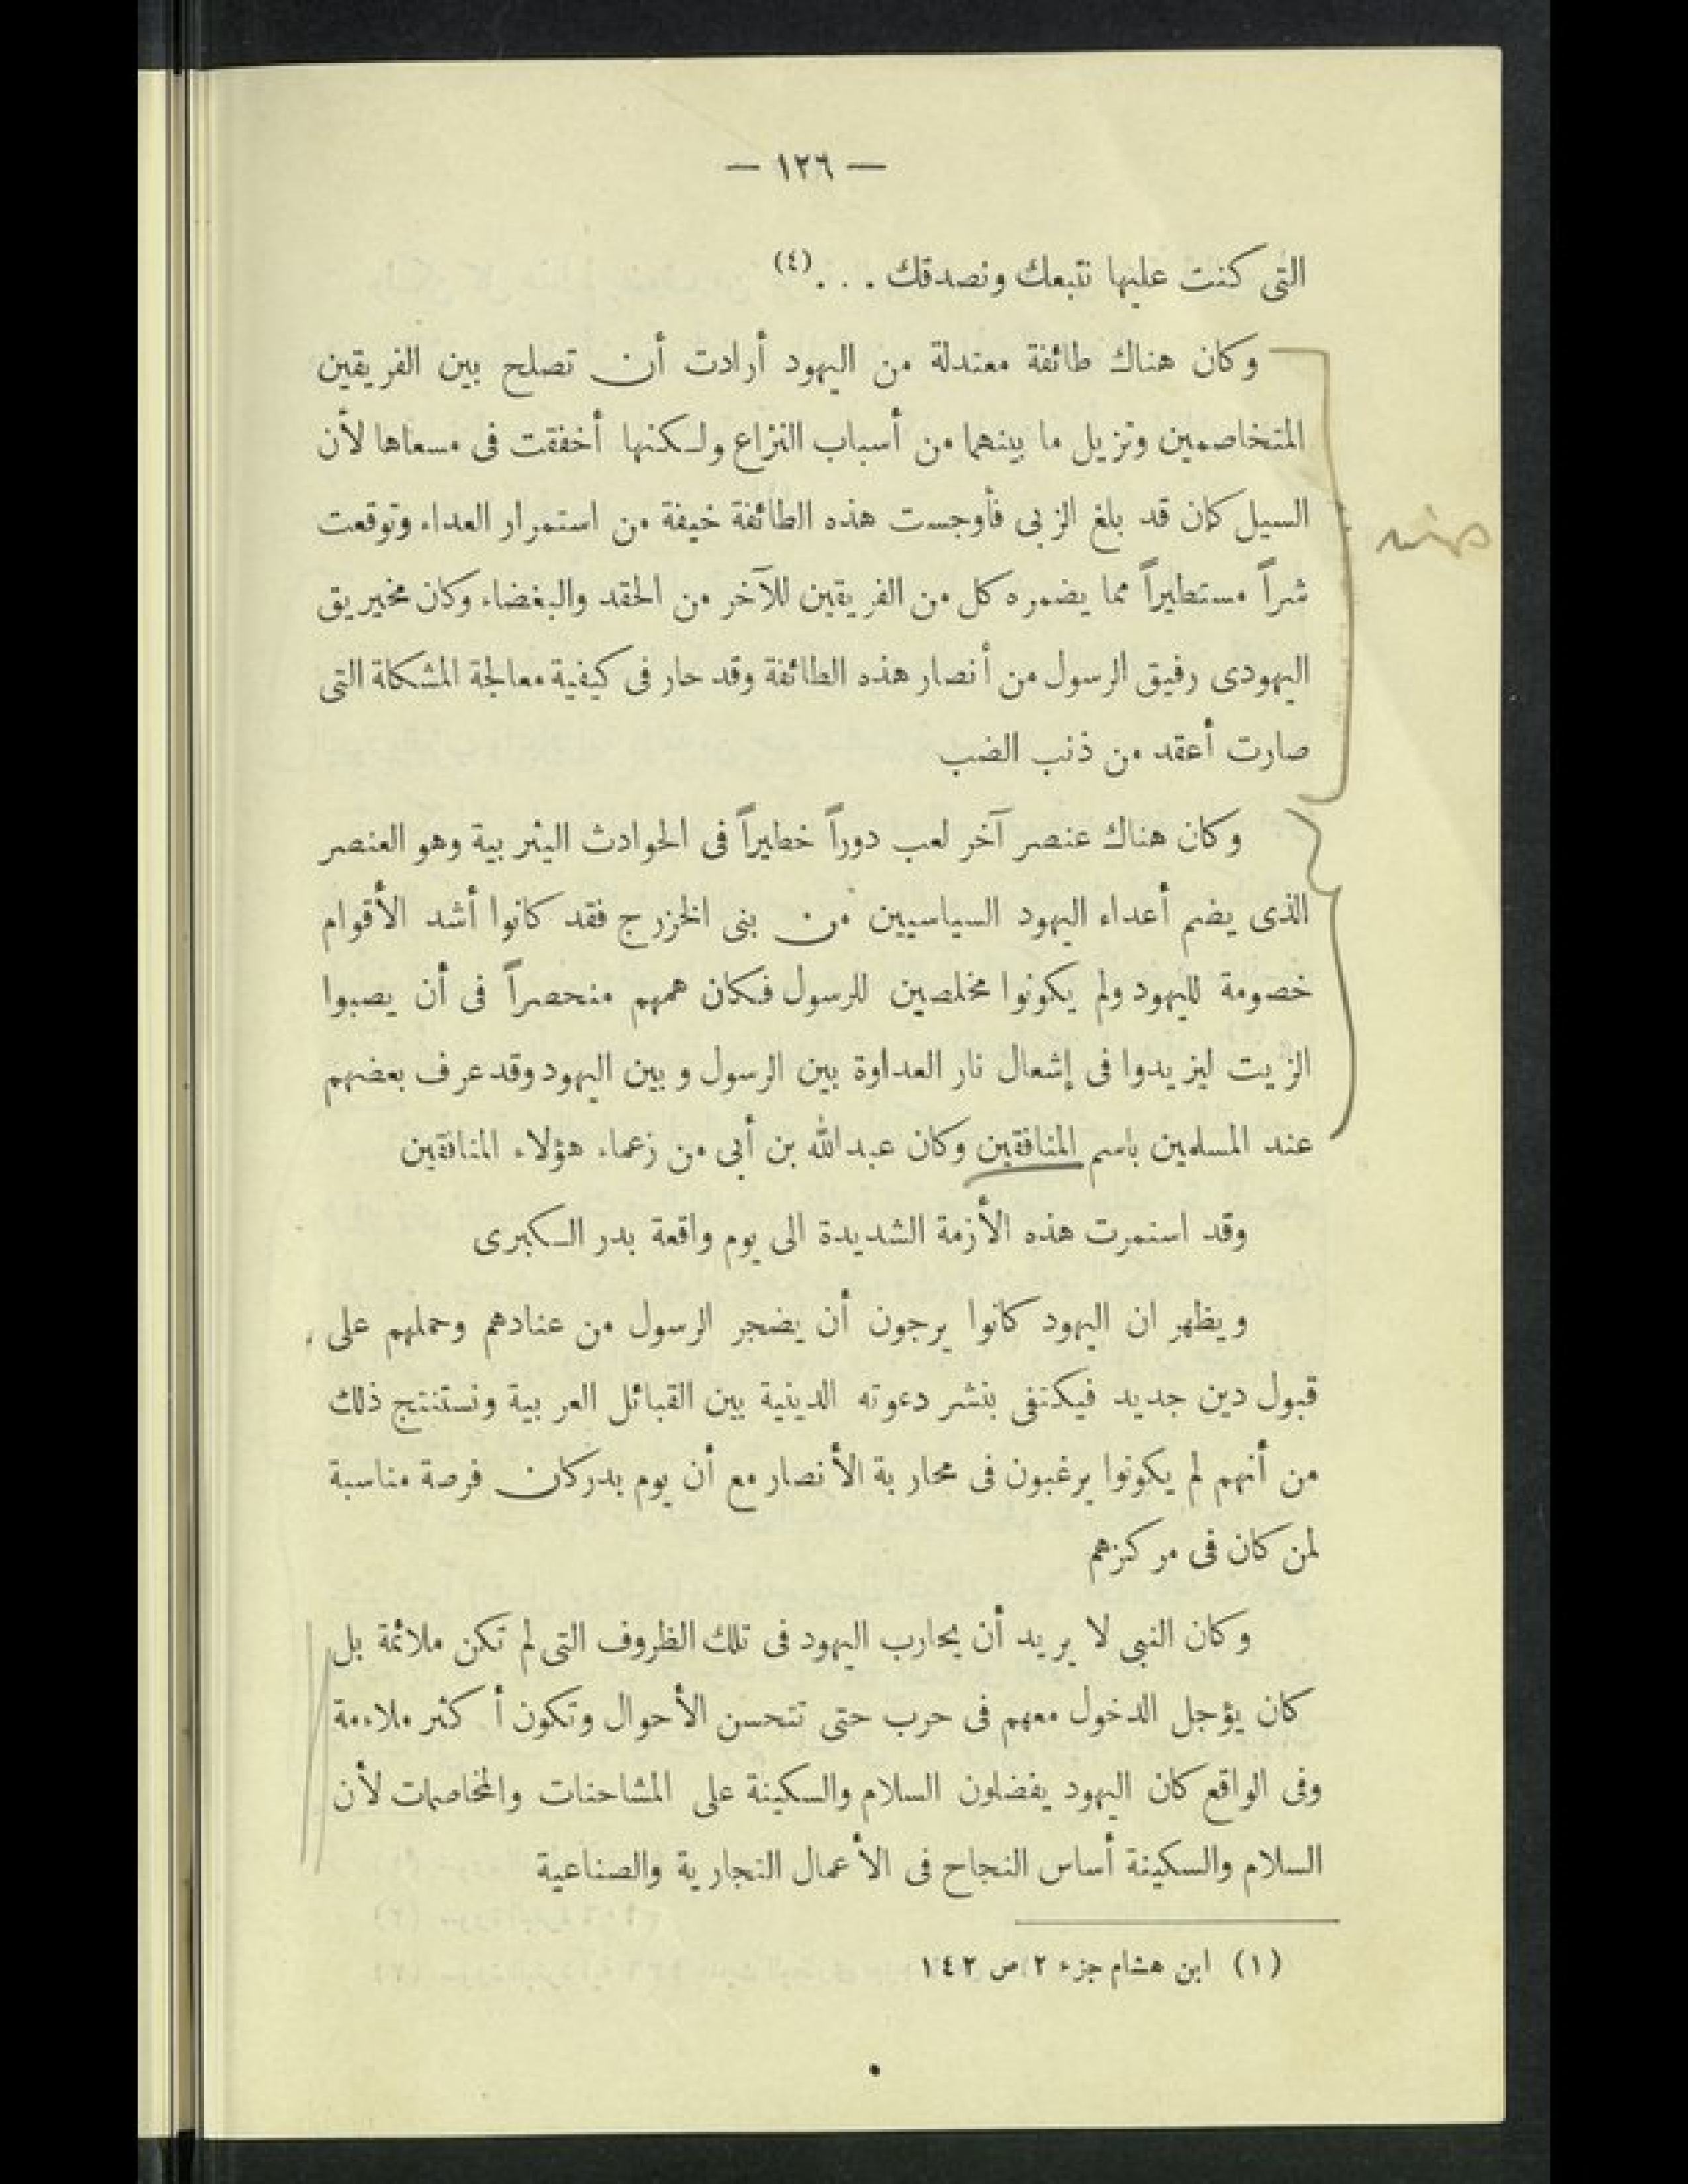 — ١٢٦ —
التى كنت عليها نتبعك ونصدقك . . . (٤)
وكان هناك طائفة معتدلة من اليهود أرادت أن تصلح بين الفريقين
المتخاصمين وتزيل ما بينهما من أسباب النزاع ولكنها أخفقت فى مسعاها لأن
السيل كان قد بلغ الزبى فأوجست هذه الطائفة خيفة من استمرار العداء وتوقعت
شراً مستطيراً مما يضمره كل من الفريقين للآخر من الحقد والبغضاء وكان مخيريق
اليهودى رفيق الرسول من أنصار هذه الطائفة وقد حار فى كيفية معالجة المشكلة التى
صارت أعقد من ذنب الضب
وكان هناك عنصر آخر لعب دوراً خطيراً فى الحوادث اليثربية وهو العنصر
الذى يضم أعداء اليهود السياسيين من بنى الخزرج فقد كانوا أشد الأقوام
خصومة لليهود ولم يكونوا مخلصين للرسول فكان همهم منحصراً فى أن يصبوا
الزيت ليزيدوا فى إشعال نار العداوة بين الرسول وبين اليهود وقد عرف بعضهم
عند المسلمين باسم المنافقين وكان عبد الله بن أبى من زعماء هؤلاء المنافقين
وقد استمرت هذه الأزمة الشديدة الى يوم واقعة بدر الكبرى
ويظهر ان اليهود كانوا يرجون أن يضجر الرسول من عنادهم وحملهم على
قبول دين جديد فيكتفى بنشر دعوته الدينية بين القبائل العربية ونستنتج ذلك
من أنهم لم يكونوا يرغبون فى محاربة الأنصار مع أن يوم بدر كان فرصة مناسبة
لمن كان فى مركزهم
وكان النبى لا يريد أن يحارب اليهود فى تلك الظروف التى لم تكن ملائمة بل
كان يؤجل الدخول معهم فى حرب حتى تتحسن الأحوال وتكون أكثر ملاءمة
وفى الواقع كان اليهود يفضلون السلام والسكينة على المشاحنات والمخاصمات لأن
السلام والسكينة أساس النجاح فى الأعمال التجارية والصناعية
(١) ابن هشام جزء ٢ ص ١٤٢